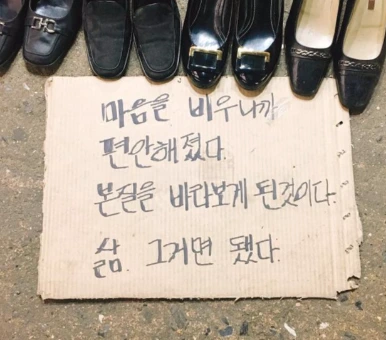 마음을 비우니까
편안해졌다.
본질을 바라보게 된것이다.
삶. 그거면 됐다.